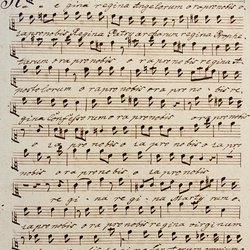 e gina regina Angelorum ora pro nobis
ra pro nobis Regina Patriarcharum regina Prophe
tarum ora pro nobis o ra pro nobis regina A
postolorum o ra pro nobis ora pro no bis re
gina Confessorum o ra pro nobis ora pro nobis
o ra pro nobis o ra pro no bis
nobis o ra pro nobis o ra pro nobis
re gi na re gina Marty rum o
ra pro nobis ora pro nobis regina virginum